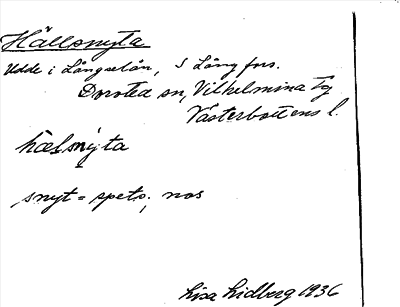 Hällsnyta
Udde i Långselån, S Långfors.
Dorotea sn, Vilhelmina tg
Västerbottens l.
hœlsnyta
snyt = spets, nos
Lisa Lidberg 1936